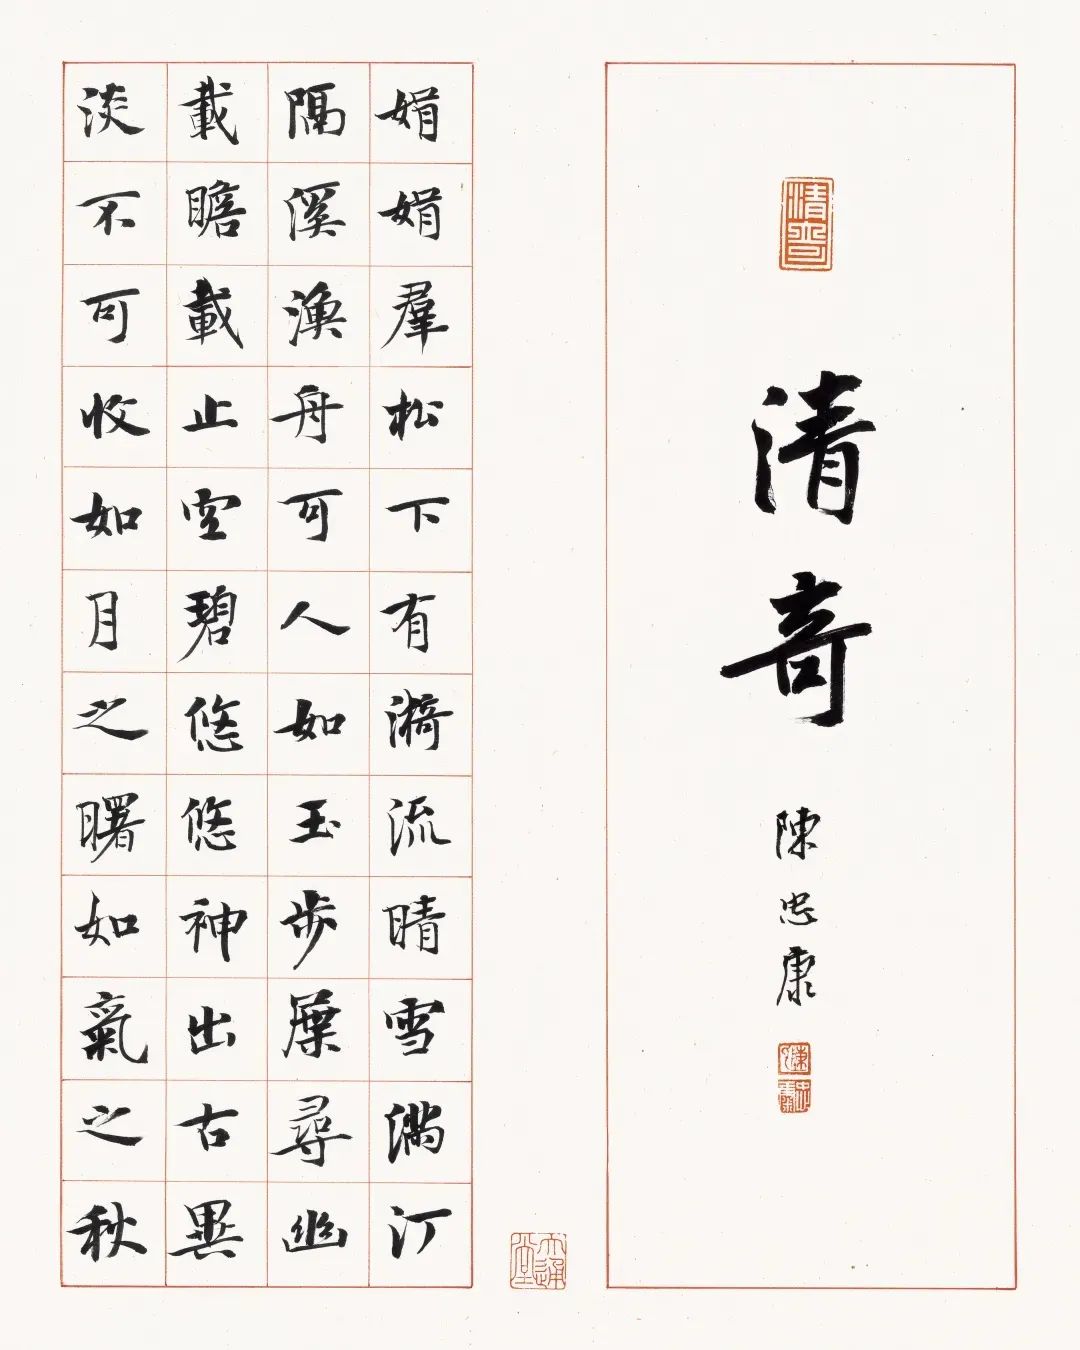 清奇
清奇
陳忠康
娟娟羣松下有漪流晴雪滿汀
隔溪漁舟可人如玉步屧尋幽
載瞻載止空碧悠悠神出古異
淡不可收如月之曙如氣之秋